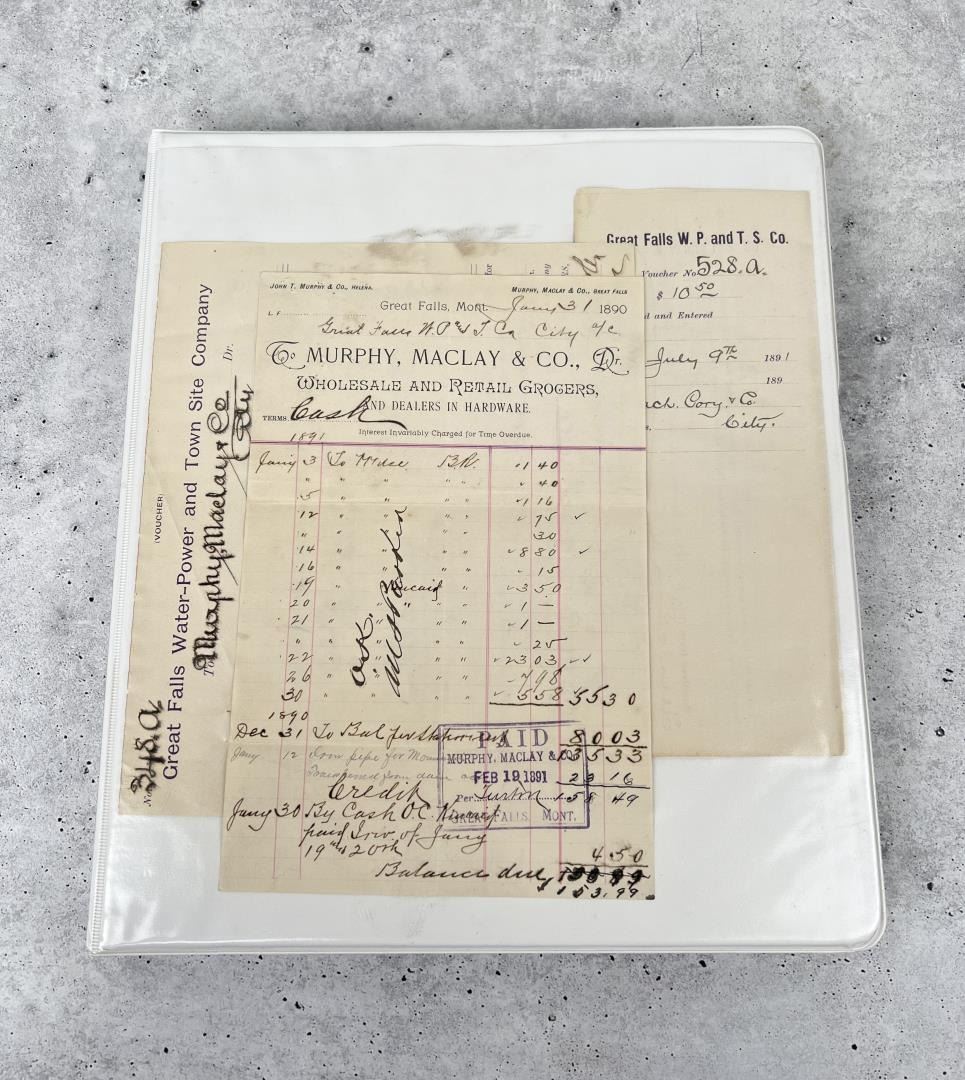 JOHN T. MURPHY & CO., HELENA.
MURPHY, MACLAY & CO., GREAT FALLS
L. F.
Great Falls, Mont. Jany 31 1890
Great Falls W. P & T Co City a/c
To MURPHY, MACLAY & CO., Dr.
WHOLESALE AND RETAIL GROCERS,
AND DEALERS IN HARDWARE.
TERMS Cash
Interest Invariably Charged for Time Overdue.
1891
Jany 3 To Mdse BR. 1 40
" " " " 40
5 " " " 1 16
12 " " " 75
" " " " 30
14 " " " 8 80
16 " " " 15
19 " 3 50
20 " " " 1 —
21 " " " 1 —
" " " " 25
22 " " " 23 03
26 " " " 7 98
30 " " " 5 58 55 30
O.K.
1890
Dec 31 To Bal per Statement 80 03
135 33
Jany 12 Iron pipe for
Transferred from 23 16
158 49
Credit
Jany 30 By Cash O.C.
paid Inv. of Jany
19th & 20th 4 50
Balance due 153.99
PAID
MURPHY, MACLAY & CO
FEB 19 1891
Per Turton
GREAT FALLS, MONT.
(VOUCHER)
Great Falls Water-Power and Town Site Company
To Murphy, Maclay & Co Dr.
City
No.
Great Falls W. P. and T. S. Co.
Voucher No 528.a.
$ 10 50
d and Entered
July 9th 1891
189
ch. Cory. & Co.
City.